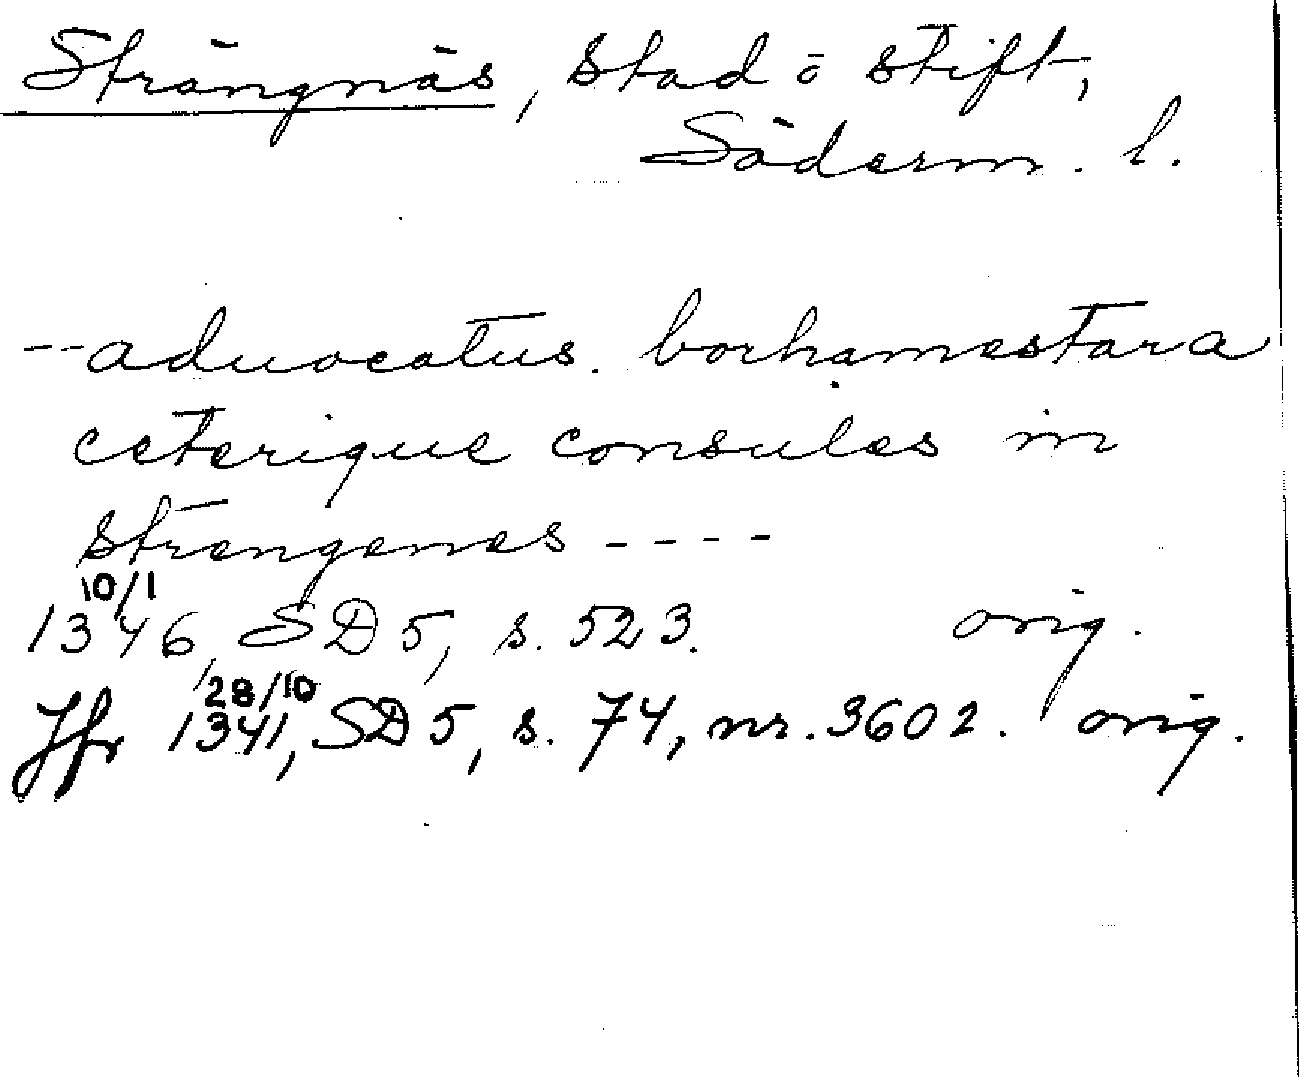 Strängnäs, stad o stift,
Söderm. l.
--aduocatus. borhamestara
ceterique consules in
strengenes ----
10/1
1346, SD 5, s. 523. orig.
28/10
Jfr 1341, SD 5, s. 74, nr. 3602. orig.